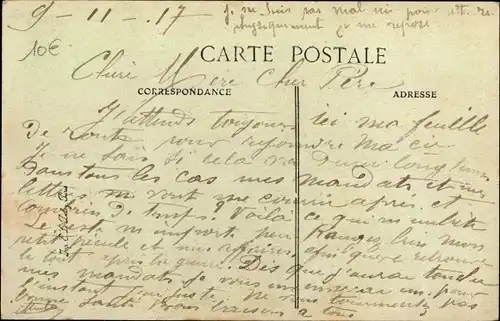 9-11-.17
je ne suis pas mal ici pour
physiquement je me repose
10€
CARTE POSTALE
Chère Mère Cher Père
CORRESPONDANCE
ADRESSE
J'attends toujours ici ma feuille
De route pour rejoindre ma Cie
Je ne sais si cela va durer longtemps
Dans tous les cas mes mandats et mes
lettres me vont courir après et
combien de temps? Voilà ce qui m'embête
Le reste m'importe peu Rangez bien mon
petit pécule et mes afin que je retrouve
le tout après la guerre. Dès que j'aurai touché
mes mandats je vous en pour
l'instant j'en Ne vous tourmentez pas
Bonne Santé Bons baisers à tous